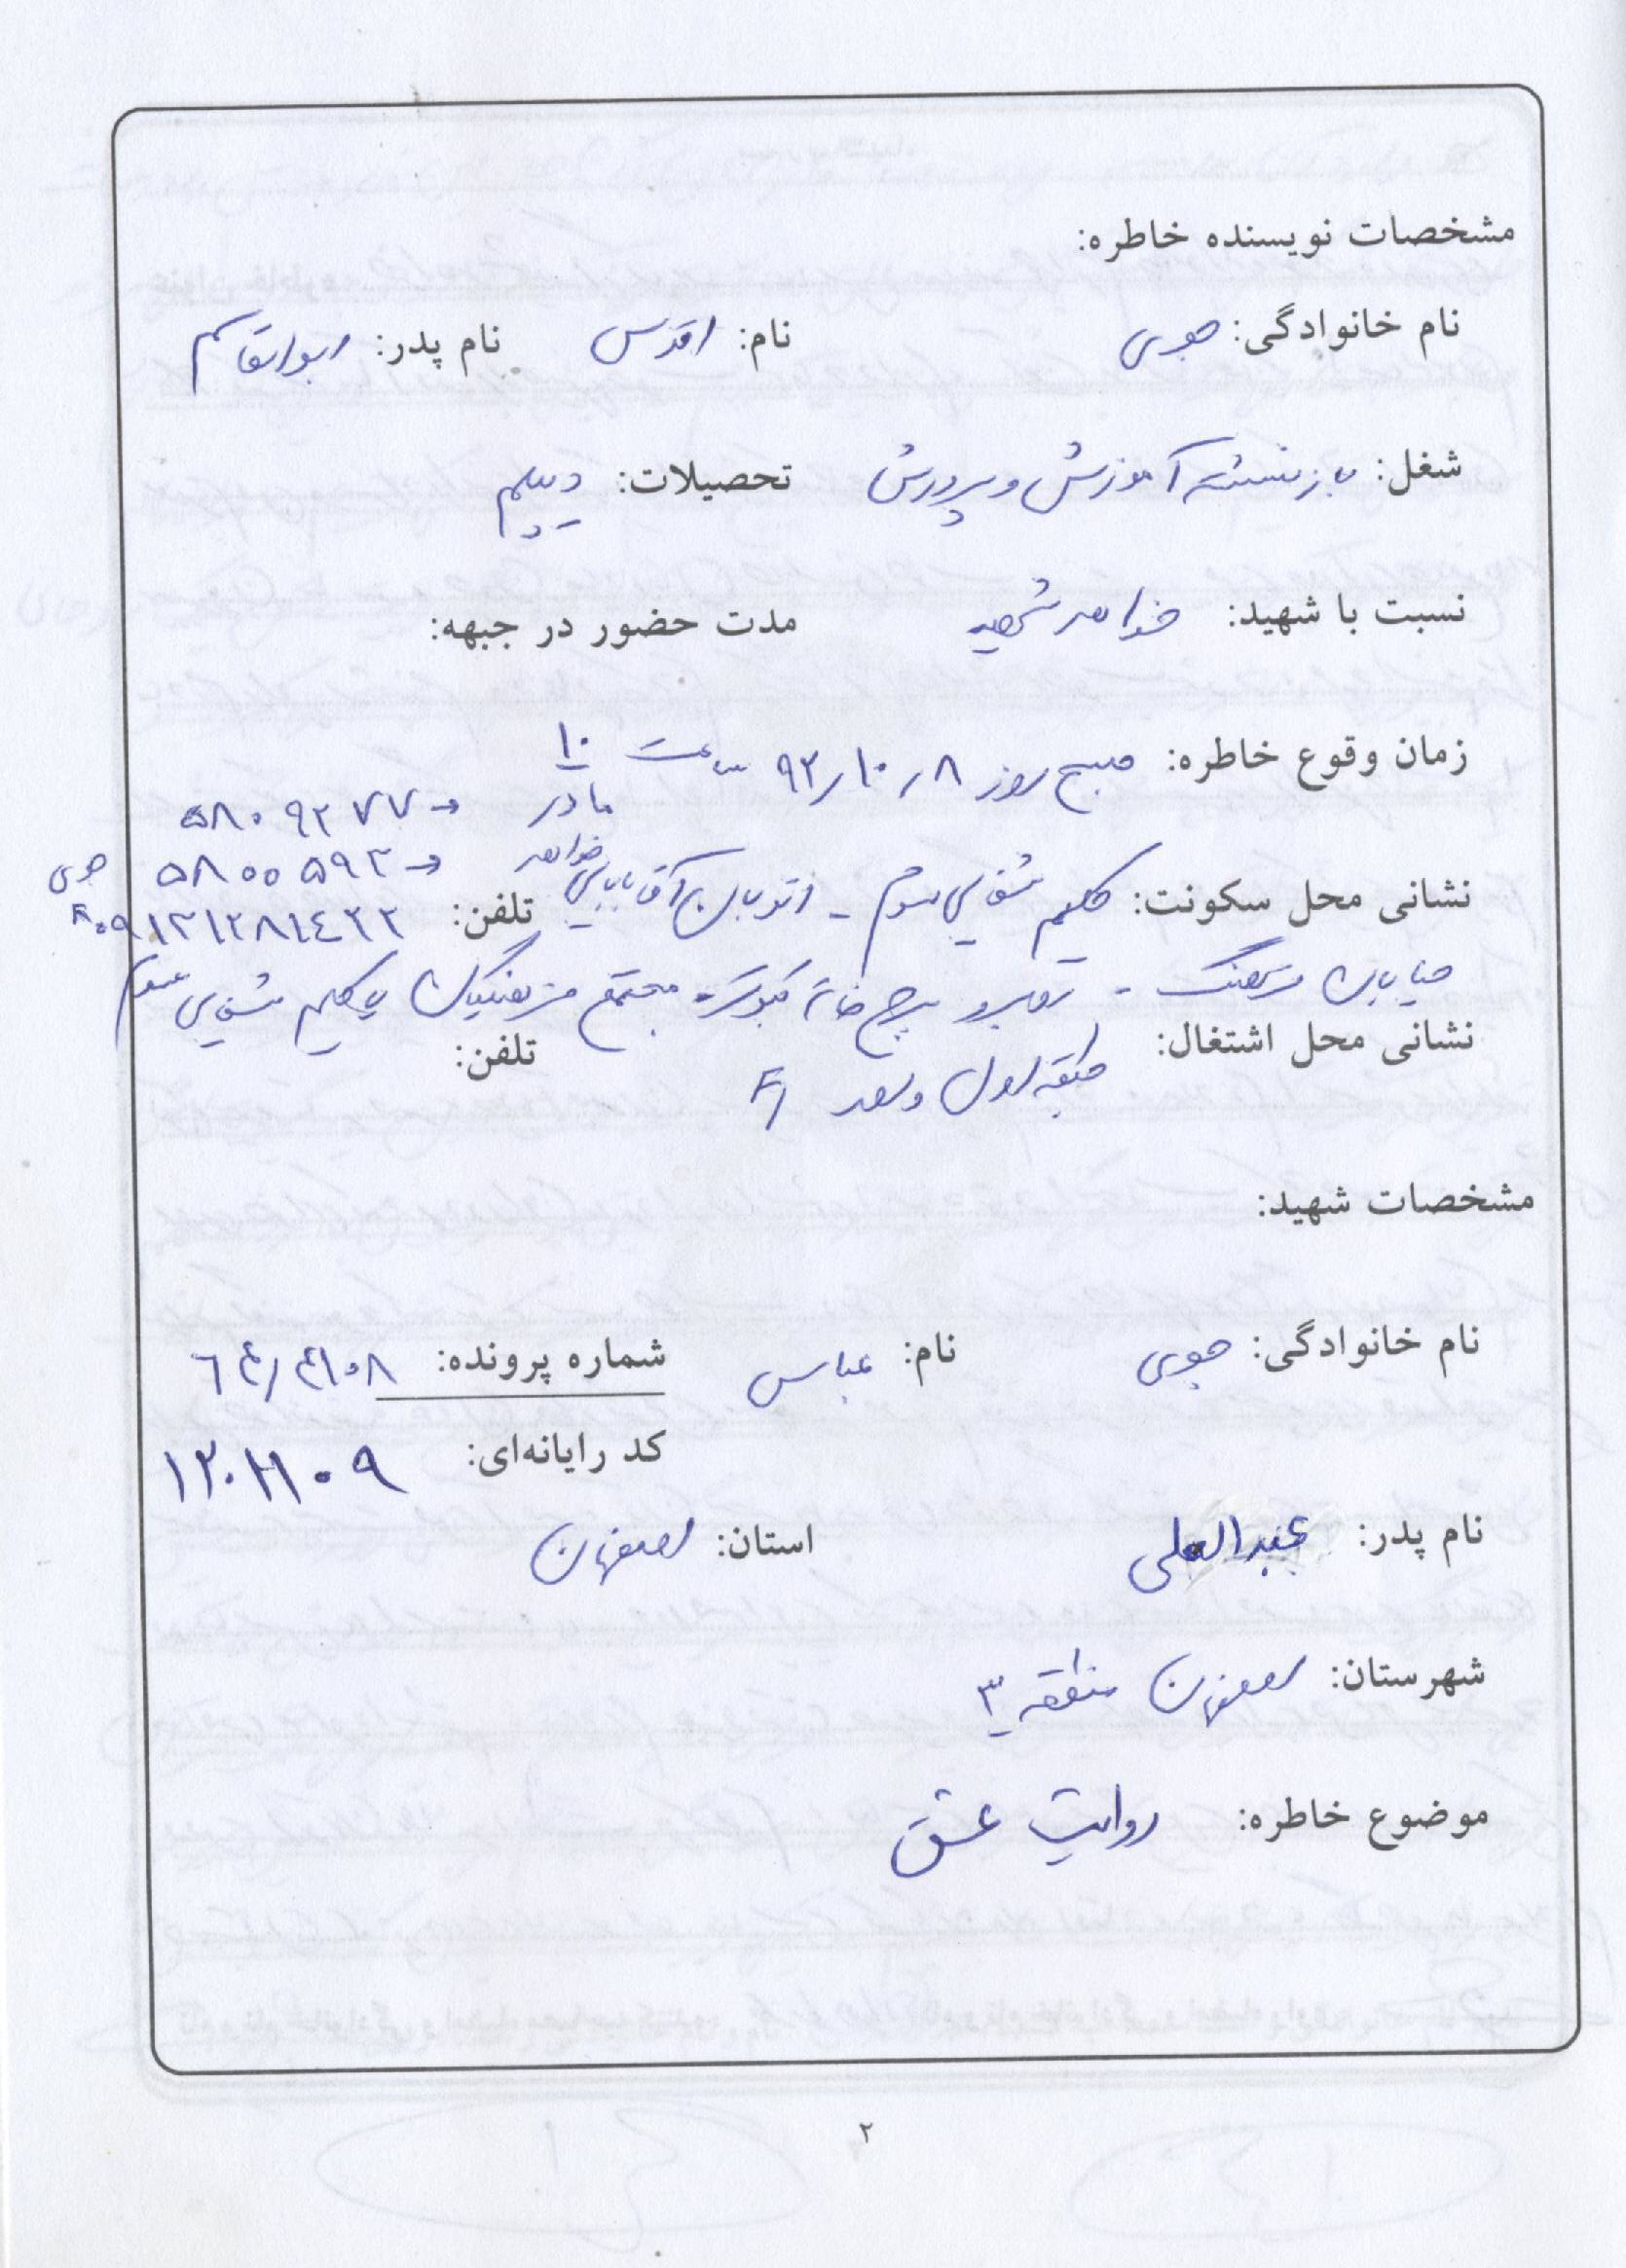 مشخصات نویسنده خاطره:
نام خانوادگی: نام: اقدس نام پدر: ابوالقاسم
شغل: بازنشسته آموزش و پرورش تحصیلات: دیپلم
نسبت با شهید: خواهر شهید مدت حضور در جبهه:
زمان وقوع خاطره: صبح روز ۹۳/۱۰/۸ ساعت ۱۰
مادر → ۵۸۰۹۲۷۷
خواهر → ۵۸۰۰۵۹۳
نشانی محل سکونت: حکیم شفایی سوم - اتوبان آقابابایی تلفن: ۰۹۱۳۱۲۸۱۴۳۳
خیابان فرهنگ - روبرو برج خانه کبوتر مجتمع فرهنگیان حکیم شفایی سوم
نشانی محل اشتغال: طبقه اول واحد تلفن:
مشخصات شهید:
نام خانوادگی: نام: عباس شماره پرونده: ۶۴/۴۱۰۸
کد رایانه‌ای:
نام پدر: عبدالعلی استان: اصفهان
شهرستان: اصفهان منطقه ۳
موضوع خاطره: روایت عشق
۲